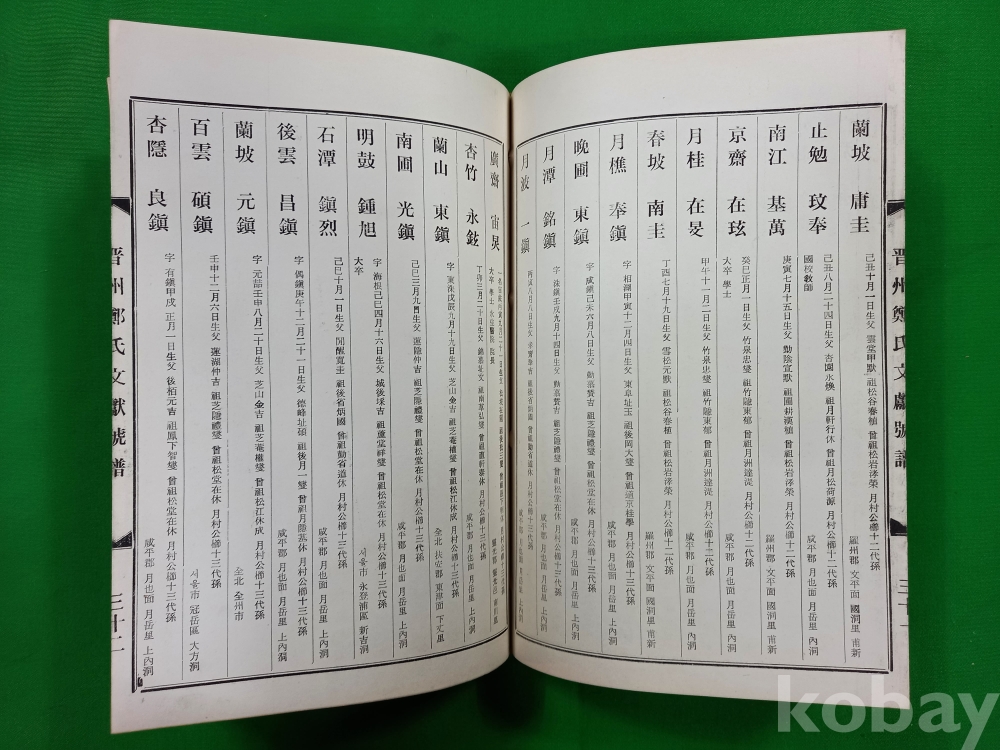 晋州鄭氏文獻號譜
蘭坡 庸圭
己丑十月一日生父 雲堂甲默 祖松谷春植 曾祖松岩澤榮 月村公櫛十二代孫
羅州郡 文平面 國洞里 甫新
止勉 玟奉
己丑八月二十四日生父 杏園永煥 祖月軒行休 曾祖月松荷源 月村公櫛十二代孫
國校敎師
咸平郡 月也面 月岳里 上內洞
南江 基萬
庚寅七月十五日生父 勳陰宣默 祖圃耕漢植 曾祖松岩澤榮 月村公櫛十二代孫
羅州郡 文平面 國洞里
京齋 在玹
癸巳正月一日生父 竹泉忠燮 祖竹隱東郁 曾祖月洲達湜 月村公櫛十二代孫
大卒 學士
咸平郡 月也面 月岳里 內洞
月桂 在旻
甲午十一月二日生父 竹泉忠燮 祖竹隱東郁 曾祖月洲達湜 月村公櫛十二代孫
咸平郡 月也面 月岳里 內洞
春坡 南圭
丁酉七月十九日生父 雪松元默 祖松谷春植 曾祖松岩澤榮 月村公櫛十二代孫
羅州郡 文平面 國洞里 甫新
月樵 奉鎭
字 相湖甲寅十二月四日生父 東阜址玉 祖後岡大燮 曾祖道京桂學 月村公櫛十三代孫
咸平郡 月也面 月岳里 上內洞
晚圃 東鎭
字 咸鎭己未六月八日生父 勳菴贊吉 祖芝隱禮燮 曾祖松堂在休 月村公櫛十三代孫
咸平郡 月也面 月岳里 上內洞
月潭 銘鎭
字 洙鎭壬戌九月十四日生父 勳菴贊吉 祖芝隱禮燮 曾祖松堂在休 月村公櫛十三代孫
咸平郡 月也面 月岳里 上內洞
月波 一鎭
咸平郡 月也面 月岳里 上內洞
廣齋 宙炅
大卒 學士
杏竹 永鉉
咸平郡 月也面 月岳里 上內洞
蘭山 東鎭
字 東洙戊辰九月十九日生父 芝山金吉 祖芝菴權燮 曾祖松江休成 月村公櫛十三代孫
全北 扶安郡 東津面 下丈里
南圃 光鎭
己巳三月九日生父 蓮隱仲吉 祖芝隱禮燮 曾祖松堂在休 月村公櫛十三代孫
咸平郡 月也面 月岳里 上內洞
明鼓 鍾旭
字 海根己巳四月十六日生父 城後埰吉 祖蘆堂祥燮 曾祖勳省道休 月村公櫛十三代孫
大卒
서울市 永登浦區 新吉洞
石潭 鎭烈
己巳十月一日生父 閒醒寬圭 祖後省炳國 曾祖勳省道休 月村公櫛十三代孫
咸平郡 月也面 月岳里 上內洞
後雲 昌鎭
字 偶鎭庚午十二月二十一日生父 德峰址碩 祖後月一燮 曾祖月隱基休 月村公櫛十三代孫
咸平郡 月也面 月岳里 上內洞
蘭坡 元鎭
字 元喆壬申八月二十日生父 芝山金吉 祖芝菴權燮 曾祖松江休成 月村公櫛十三代孫
全北 全州市
百雲 碩鎭
壬申十二月六日生父 蓮湖仲吉 祖芝隱禮燮 曾祖松堂在休 月村公櫛十三代孫
서울市 冠岳區 大方洞
杏隱 良鎭
字 有鎭甲戌 正月一日生父 後栢元吉 祖鳳下智燮 曾祖松堂在休 月村公櫛十三代孫
咸平郡 月也面 月岳里 上內洞
晋州鄭氏文獻號譜
三十二
kobay